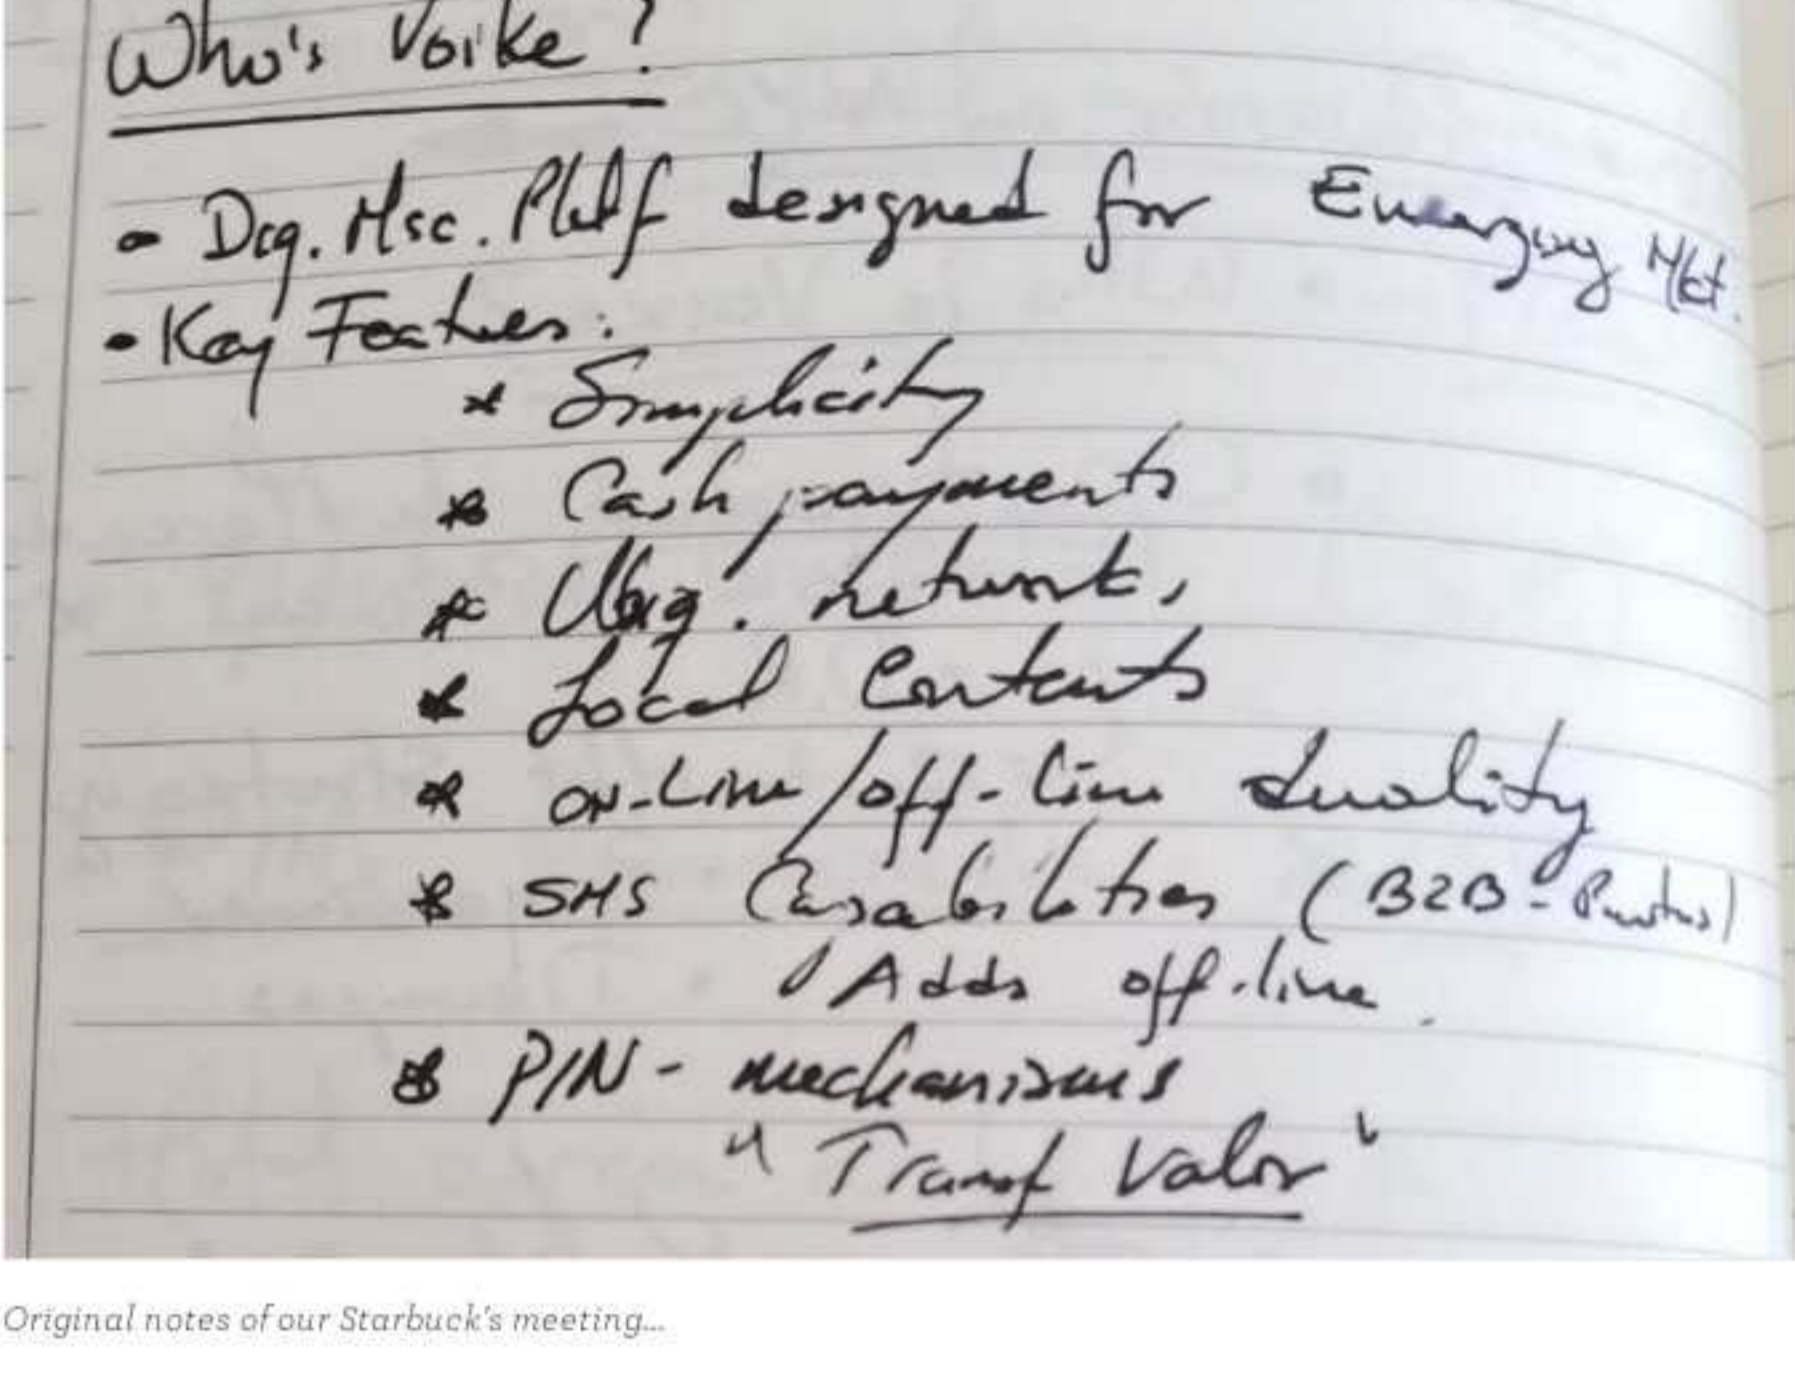 Who's Voike?
- Dig. Msc. Platf designed for Emerging Mkt.
• Key Features:
* Simplicity
* Cash payments
* Ubiq. networks
* Local Contents
* ON-Line/off-line duality
* SMS Capabilities (B2B-
Adds off-line.
* PIN - mechanisms
"Transf Valor"
Original notes of our Starbuck's meeting...